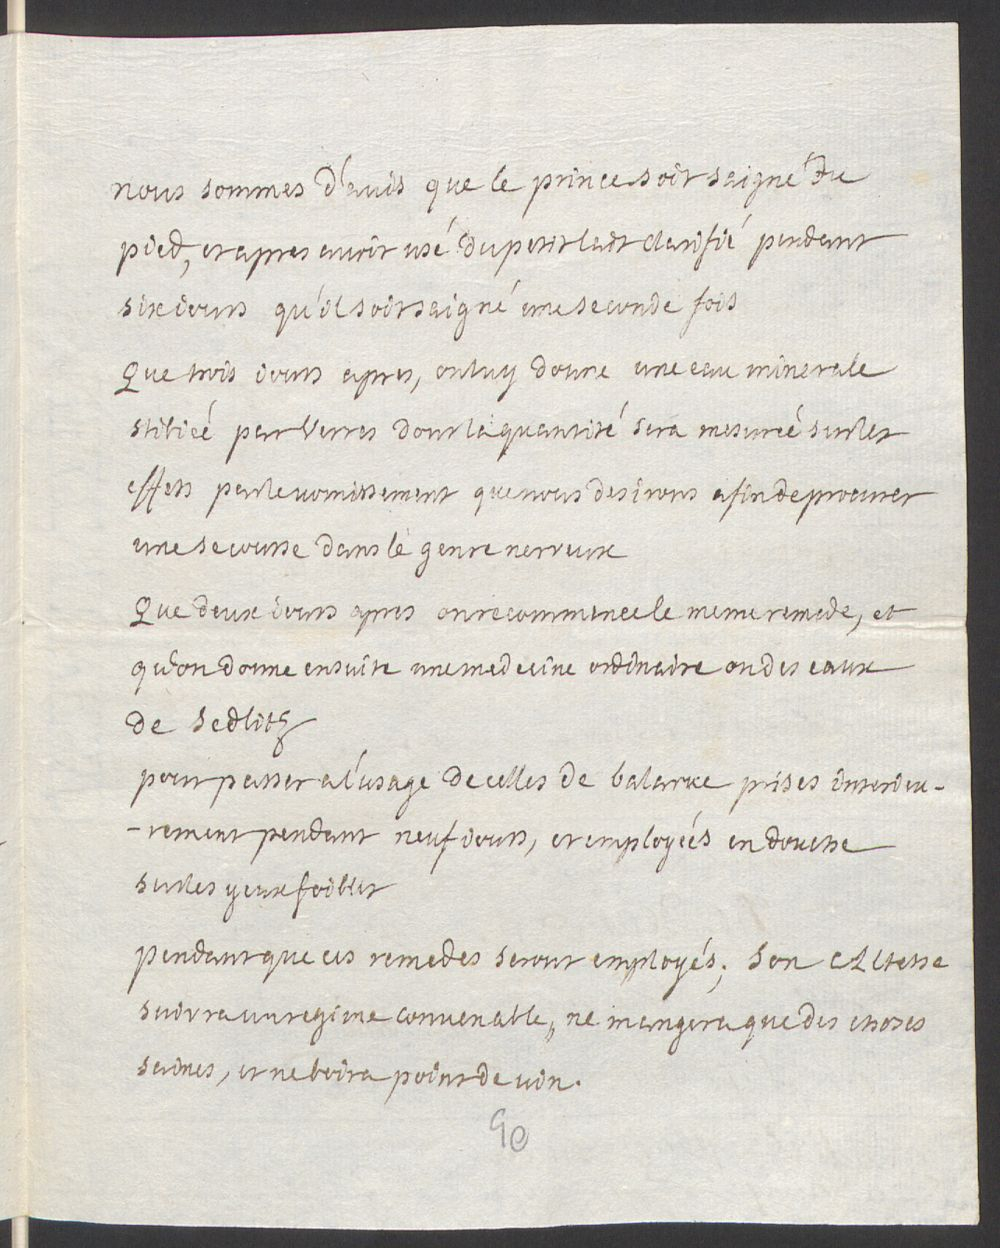 nous sommes d'auis que le prince soit saigné du
pied, et apres auoir usé du petit laict clarifié pendant
six iours qu'il soit saigné une seconde fois
Que trois iours apres, on luy donne une eau minerale
stibieé par Verres dont la quantité sera mesureé sur les
effets par le uomissement que nous desirons afin de procurer
une secousse dans le genre nerveux
Que deux iours apres on recommence le meme remede, et
qu'on donne ensuite une medecine ordinaire ou des eaux
de Sedlitz
pour passer a l'usage de celles de balaruc prises interieu-
-rement pendant neuf iours, et employeés en douche
sur les yeux foibles
pendant que ces remedes seront employés; Son Altesse
suivra un regime convenable, ne mangera que des choses
saines, et ne boira point de vin.
90